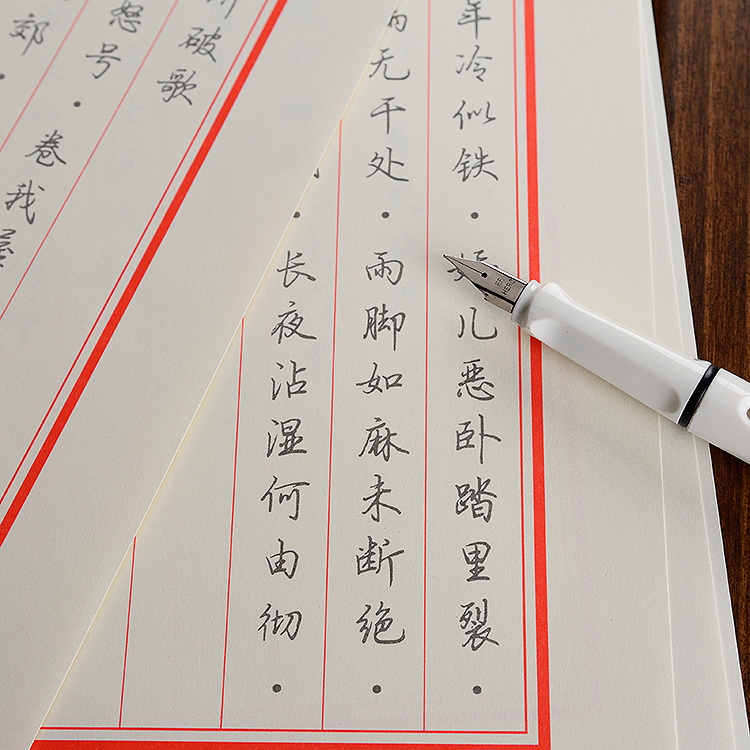 年冷似铁·娇儿恶卧踏里裂·
无干处·雨脚如麻未断绝·
长夜沾湿何由彻·
破歌
怒号·卷我
郊·